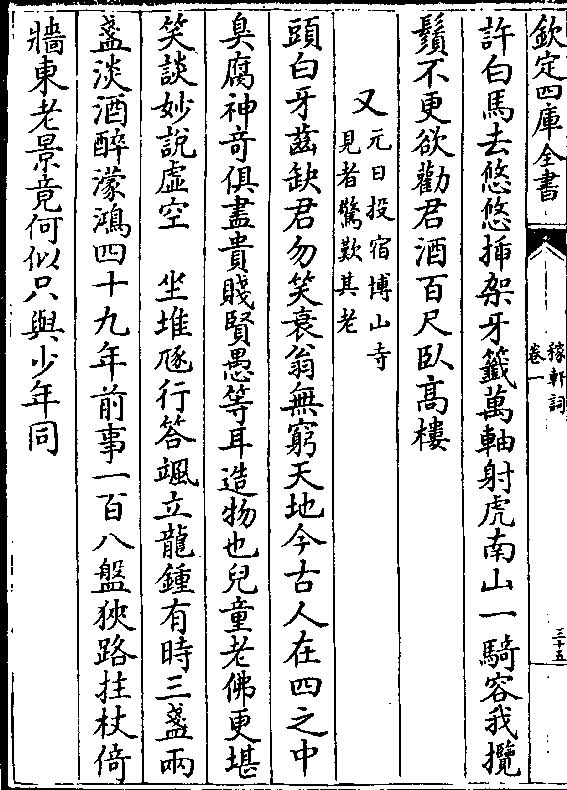 欽定四庫全書
稼軒詞
卷一
三十五
許白馬去悠悠揷架牙籖萬軸射虎南山一騎容我攬
鬚不更欲勸君酒百尺卧高樓
又元日投宿博山寺
見者驚歎其老
頭白牙齒缺君勿笑衰翁無窮天地今古人在四之中
臭腐神奇俱盡貴賤賢愚等耳造物也兒童老佛更堪
笑談妙說虛空　坐堆豗行答颯立龍鍾有時三盞兩
盞淡酒醉濛鴻四十九年前事一百八盤狹路拄杖倚
牆東老景竟何似只與少年同